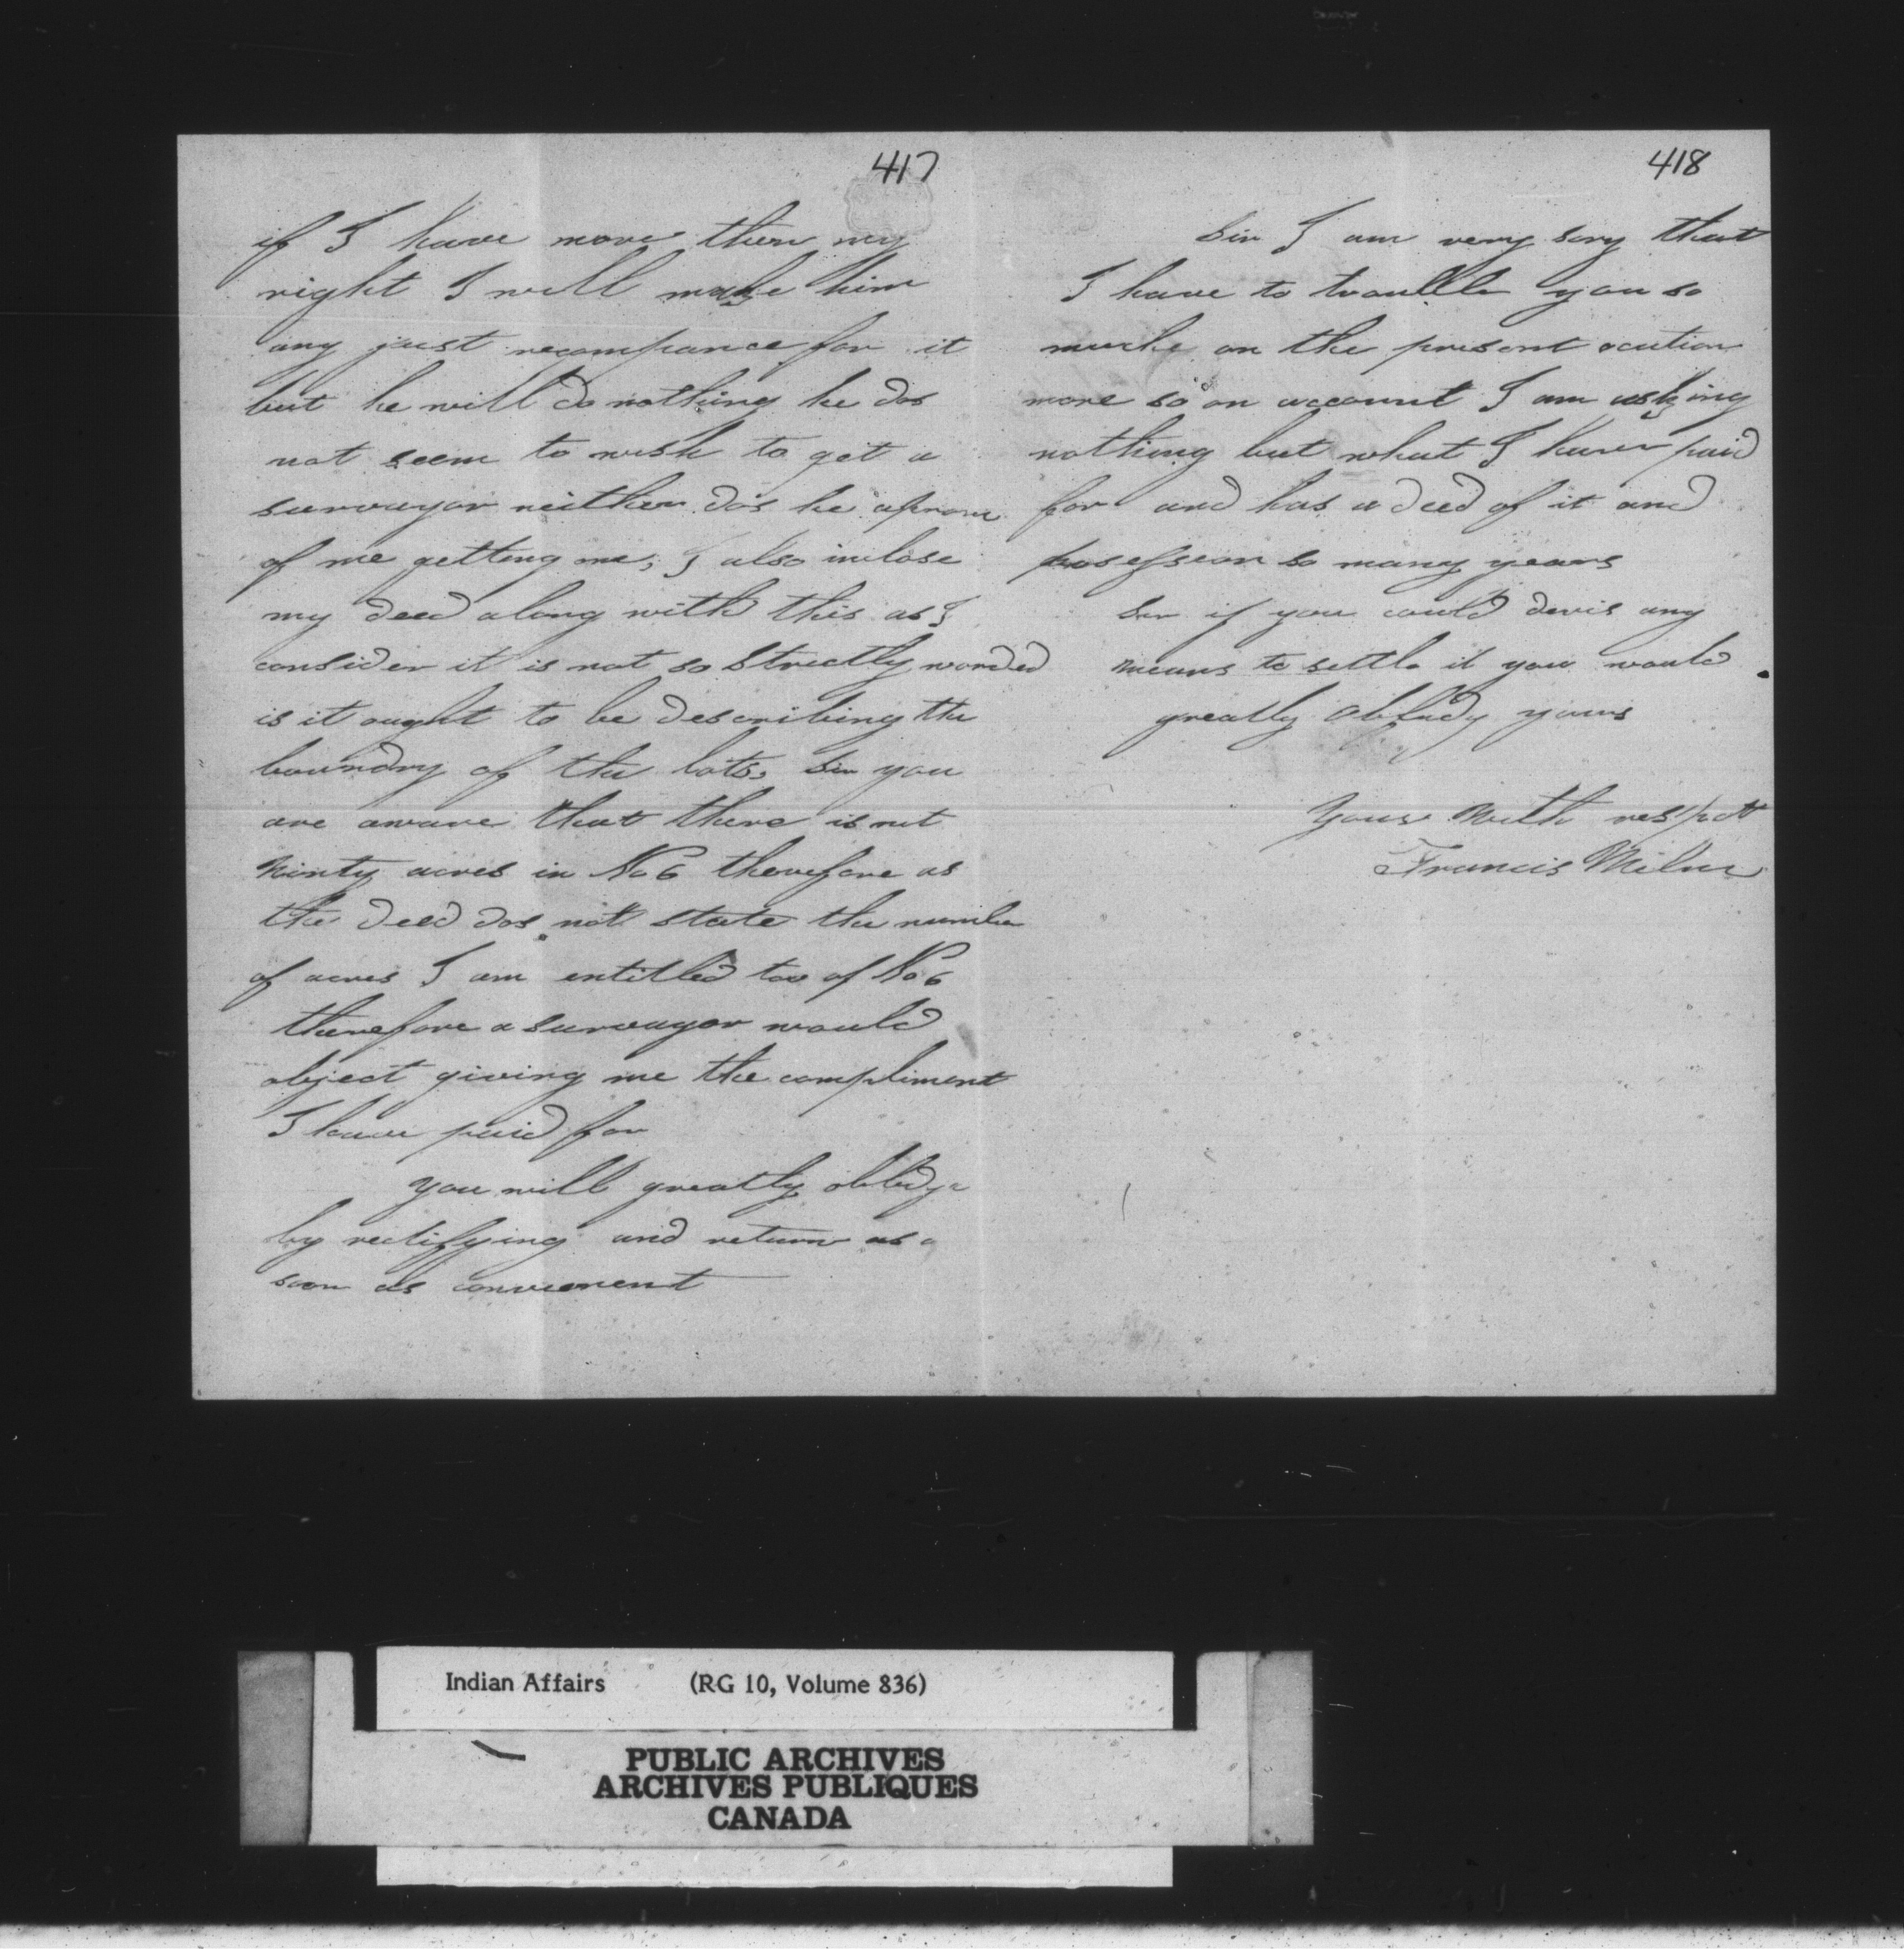 417
if I have more then my
right I will make him
any just recompance for it
but he will do nothing he dos
not seem to wish to get a
survayor neither dos he aprove
of me getting me, I also inclose
my deed along with this as I
consider it is not so strectly worded
is it ought to be describing the
boundry of the lots, Sir you
are aware that there is not
Ninty acres in No 6 therefore as
the deed dos not state the number
of acres I am entitled too of No 6
therefore a survayor would
object giving me the compliment
I have paid for
you will greatly oblidge
by rectifying and return as
soon as convienent
418
Sir I am very sory that
I have to troubble you so
muche on the present ocation
more so on account I am asking
nothing but what I have paid
for and has a deed of it and
posession so many years
Sir if you could devis any
means to settle it you would
greatly yours
Yours With respect
Francis Milner
Indian Affairs (RG 10, Volume 836)
PUBLIC ARCHIVES
ARCHIVES PUBLIQUES
CANADA